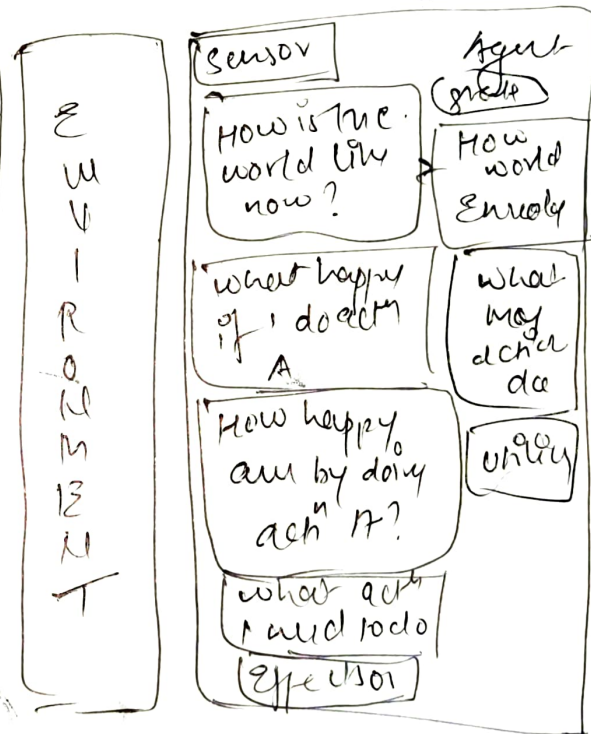 ENVIRONMENT
Sensor
Agent
State
How is the
world like
now?
How
world
what happ
if i do actn
A
what
my
action
do
How happy
am by doing
actn A?
utility
what actn
I to do
Effector